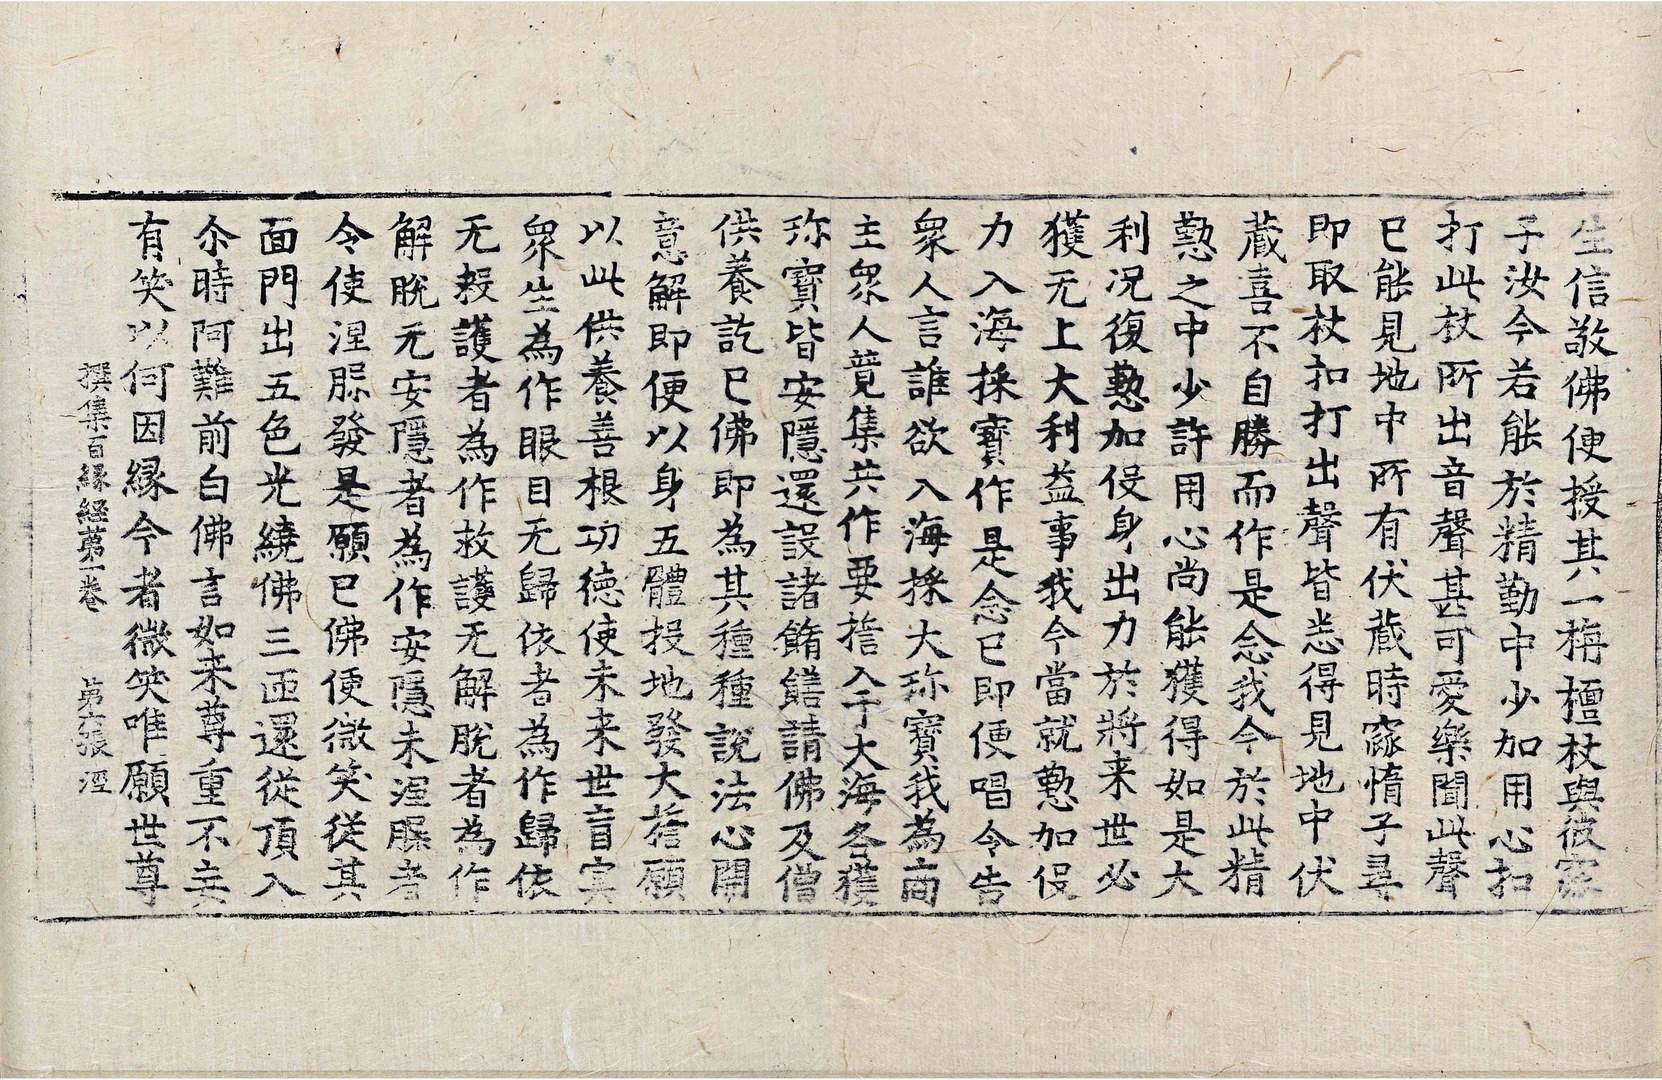 生信敬佛便授其一栴檀杖與彼窳
子汝今若能於精勤中少加用心扣
打此杖所出音聲甚可愛樂聞此聲
已能見地中所有伏藏時窳惰子尋
即取杖扣打出聲皆悉得見地中伏
藏喜不自勝而作是念我今於此精
懃之中少許用心尚能獲得如是大
利況復懃加役身出力於將来世必
獲无上大利益事我今當就懃加役
力入海採寶作是念已即便唱令告
眾人言誰欲入海採大珎寶我為商
主眾人竟集共作要擔入于大海各獲
珎寶皆安隱還設諸餚饍請佛及僧
供養訖已佛即為其種種說法心開
意解即便以身五體投地發大擔願
以此供養善根功徳使未来世盲冥
眾生為作眼目无歸依者為作歸依
无救護者為作救護无解脫者為作
解脫无安隱者為作安隱未涅槃者
令使涅槃發是願已佛便微笑從其
面門出五色光繞佛三匝還從頂入
尒時阿難前白佛言如来尊重不妄
有笑以何因縁今者微笑唯願世尊
撰集百縁經苐一卷　苐六張　涇